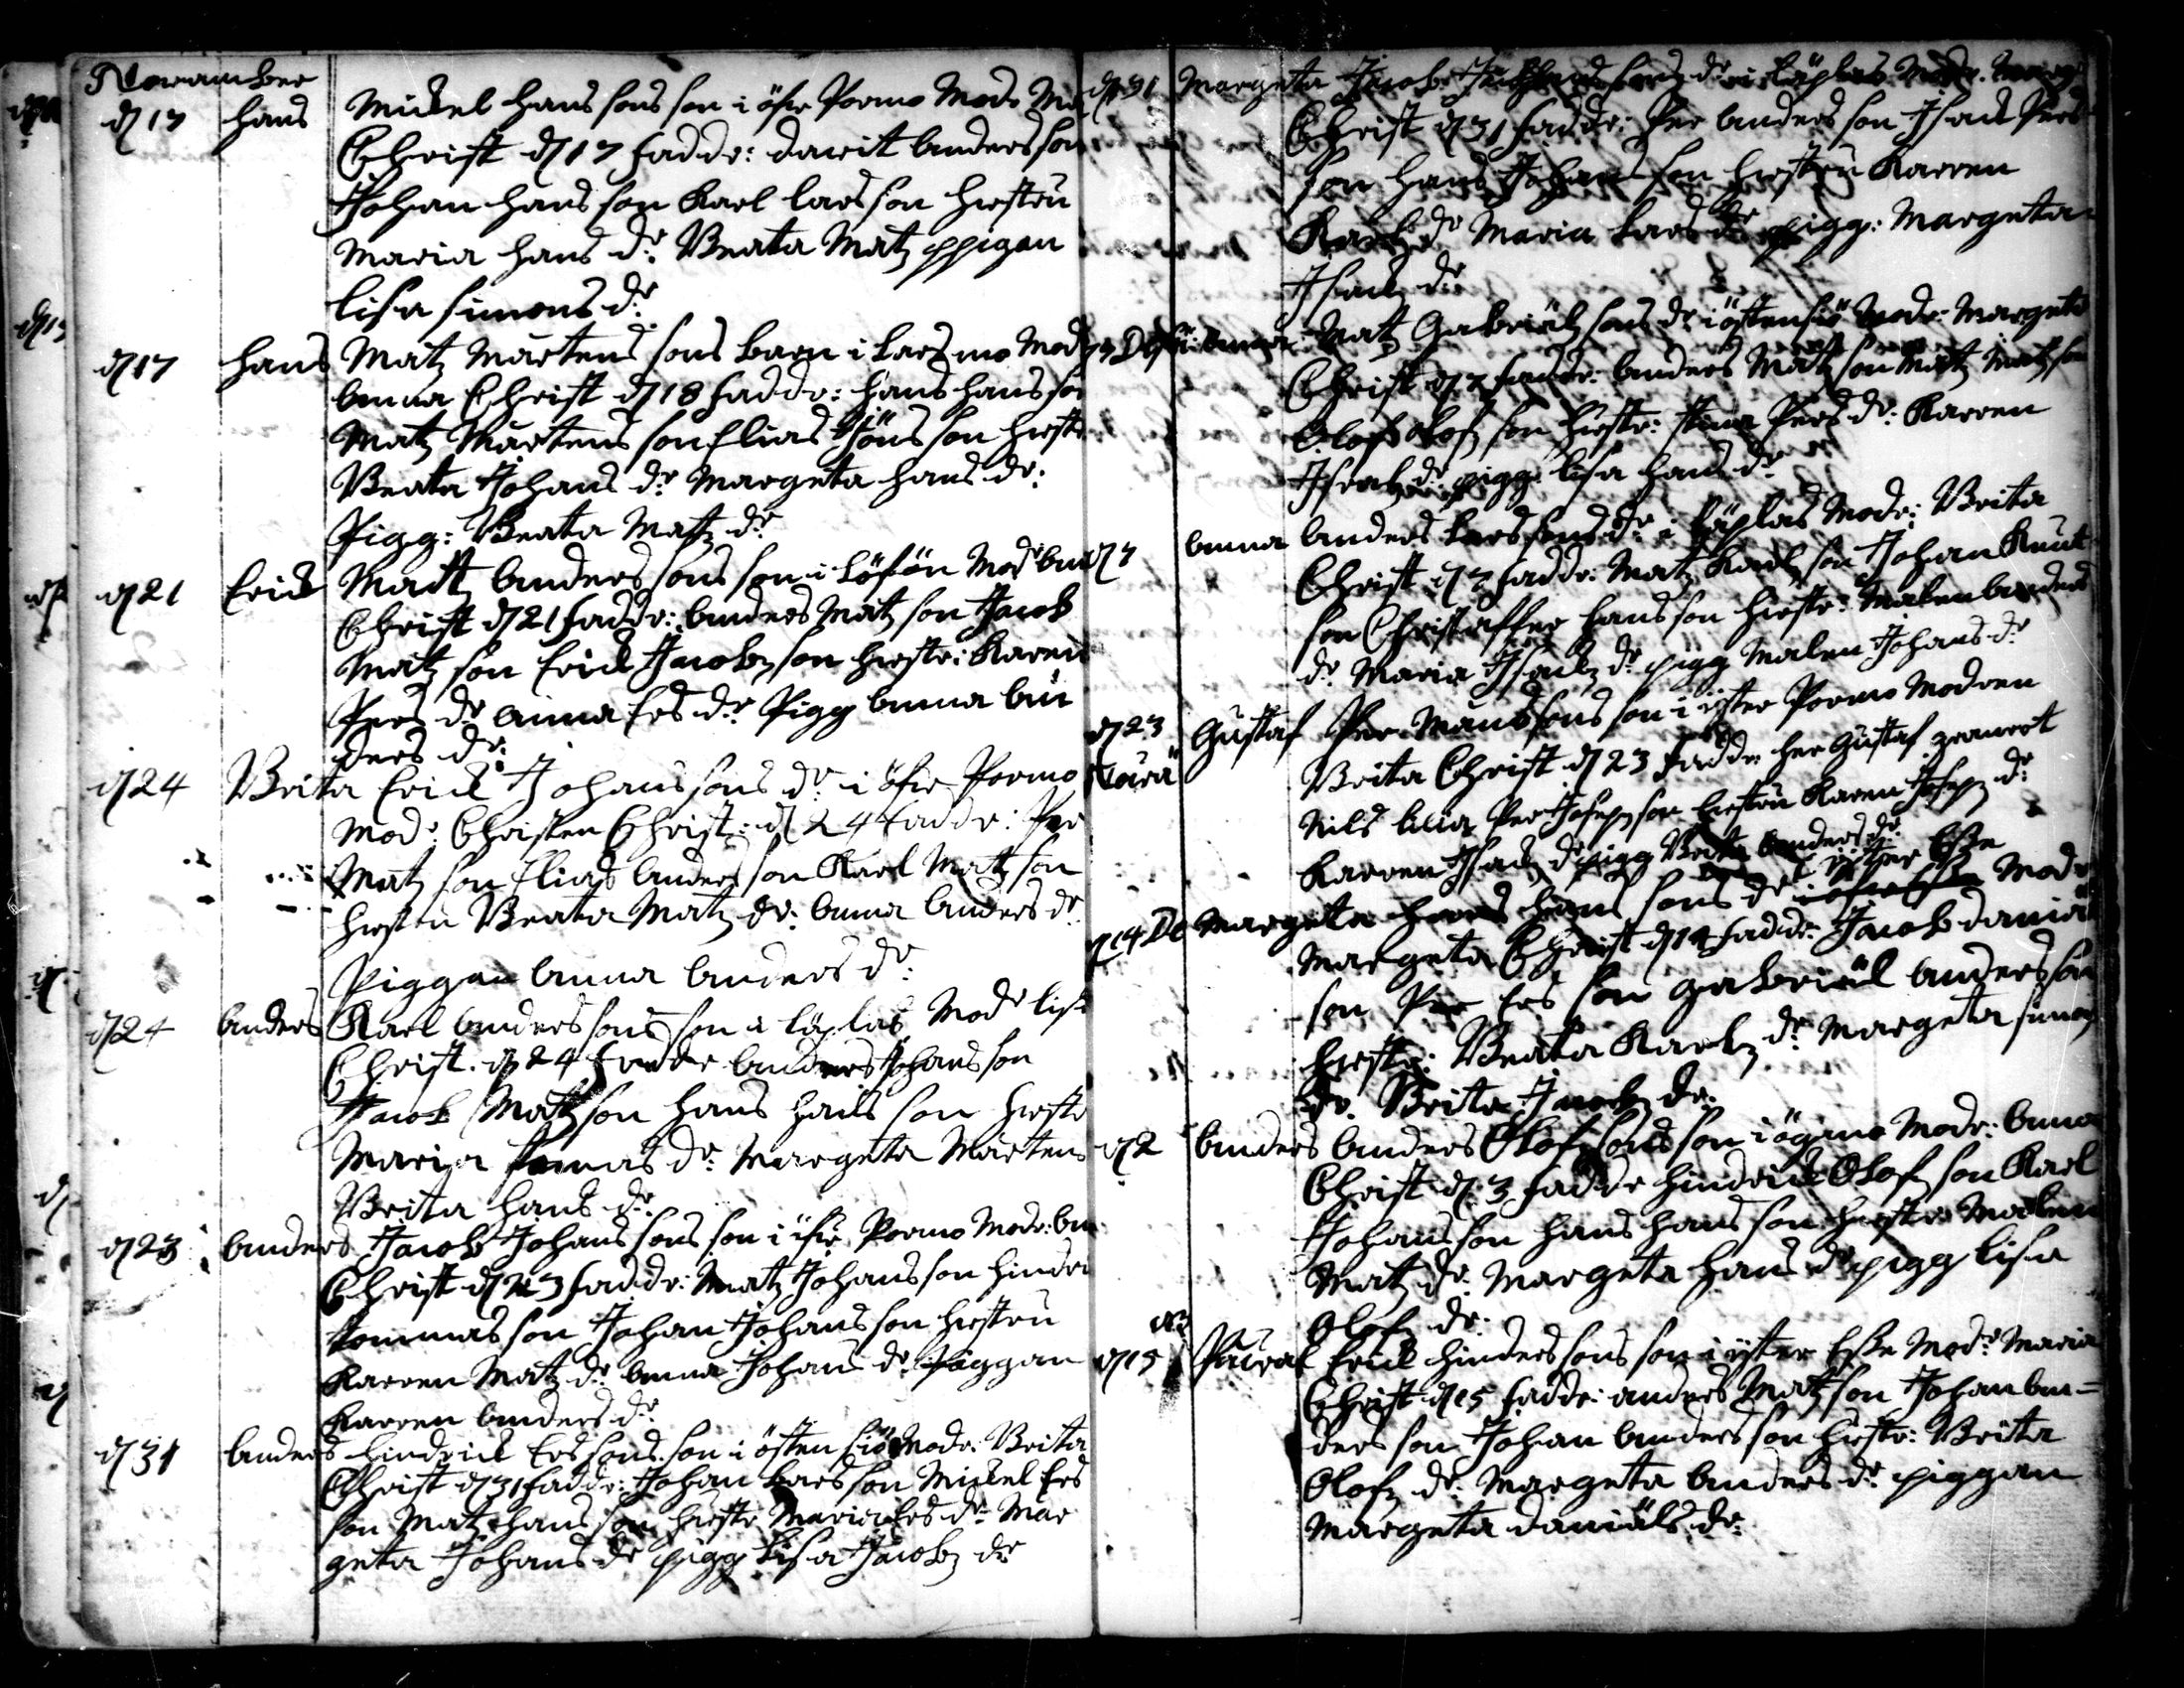 Novamber
d 17 hans Mickel hans sons son i öfre Pormo Modr
Christ d 17 faddr: davit Andersson
Johan hans son Karl lars son hustru
Maria hans dr Beata Matz ppigan
lisa simons dr
d 17 hans Matz Mårtens sons barn i Lars mo Modr
Anna Christ d 18 faddr: hans hans son
Matz Mårtens son Elias Jöns son hustr
Beata Johans dr Margeta hans dr:
Pigg: Beata Matz dr
d 21 Erick Matz Anders sons son i Löfön Modr
Christ d 21 faddr: Anders Matz son Jacob
Matz son Erick Jacobz son hustr: Karen
Pers dr Anna Ers dr Pigg Anna An
ders dr:
d 24 Brita Erick Johans sons dr i öfre Pormo
Modr Christen Christ: d 24 faddr: Per
Matz son Elias Anders son Karl Matz son
hustru Beata Matz dr: Anna Anders dr
Piggan Anna Anders dr:
d 24 Anders Karl Anders sons son i läplas Modr lisa
Christ. d 24 faddr Anders Johans son
Jacob Matz son hans hans son hustr
Maria Tomas dr Margeta Mårtens
Brita hans dr
d 23 Anders Jacob Johans sons son i öfre Pormo Modr: An
Christ d 23 faddr: Matz Johans son hindri
tommas son Johan Johans son hustru
Karren Matz dr Anna Johans dr Piggan
Karren Anders dr
d 31 Anders hindrick Ers sons son i östen siö Modr: Brita
Christ d 31 faddr: Johan Lars son Mickel Ers
son Matz hans son hustr Maria Ers dr Mar
geta Johans dr pigg Lisa Jacobz dr
d 31 Margeta Jacob dr i läplas Modr. Marg
Christ d 31 faddr: Per Anders son Isack Pers
son hans Johans son hustru Karren
Karlz dr Maria Lars dr pigg: Margeta
Isackz dr
Anna Matz Gabriälz sons dr i östensiö Modr: Margeta
Christ d 7 faddr: Anders Matz son Matz Matz son
Olof Olofz son hustr: Pers dr: Karren
dr pigg lisa hans dr
d 7 Anna Anders Lars sons dr i läplas Modr: Brita
Christ d 7 faddr: Matz Karlz son Johan Knut
son Christaffer hans son hustr: Malen Anders
dr Maria Isackz dr pigg Malen Johans dr
d 23 Gustaf Per Måns sons son i ÿter Pormo Modren
Brita Christ d 23 faddr: her Gustaf
Nils Per Josepz son hustru Karen Josepz dr
Karren Isackz dr pigg Brita Anders dr
ÿtter Eße
d 14 De Margeta hans hans sons dr i öfre Eße Modr
Margeta Christ d 14 faddr: Jacob daniäl
son Per Ers son gabriäl Anders son
hustr: Beata Karlz dr Margeta simons
dr. Brita Jacobz dr:
d 2 Anders Anders Olofz sons son i ögmo Modr: Anna
Christ d 3 faddr hindrick Olofz son Karl
Johans son hans hans son hustr: Malen
Matz dr: Margeta hans dr pigg lisa
Olofz dr:
d 15 Erick hinders sons son i ÿter Eße Modr Maria
Christ d 15 faddr: Anders Matz son Johan An=
ders son Johan Anders son hustr: Brita
Olofz dr: Margeta Anders dr piggan
Margeta daniäls dr: